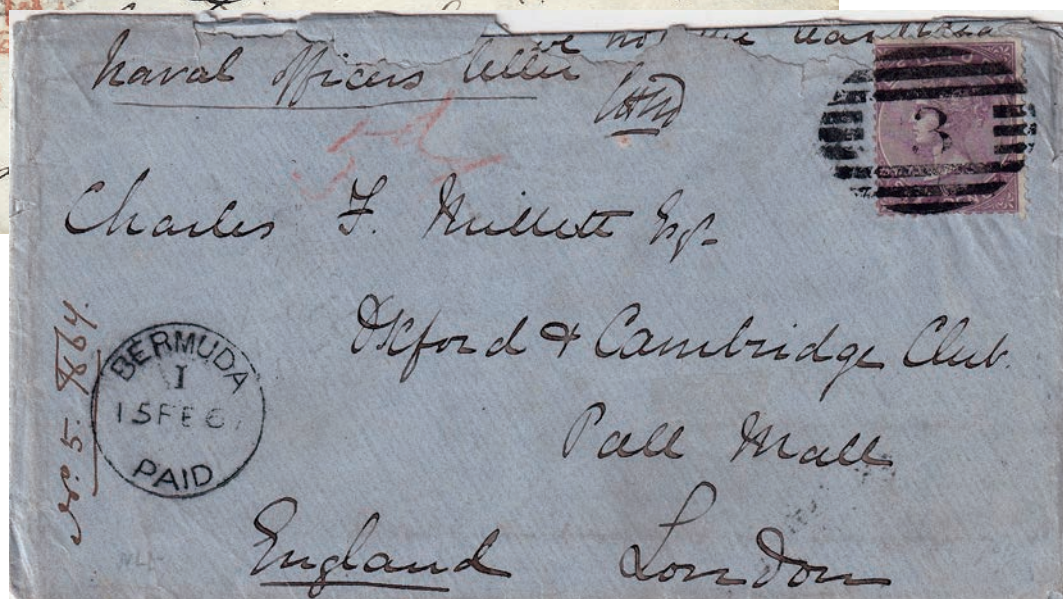 Naval Officers letter
3
Charles F. Millett Esqr.
Oxford & Cambridge Club.
Pall Mall
England London
BERMUDA
1
15 FE 6
PAID